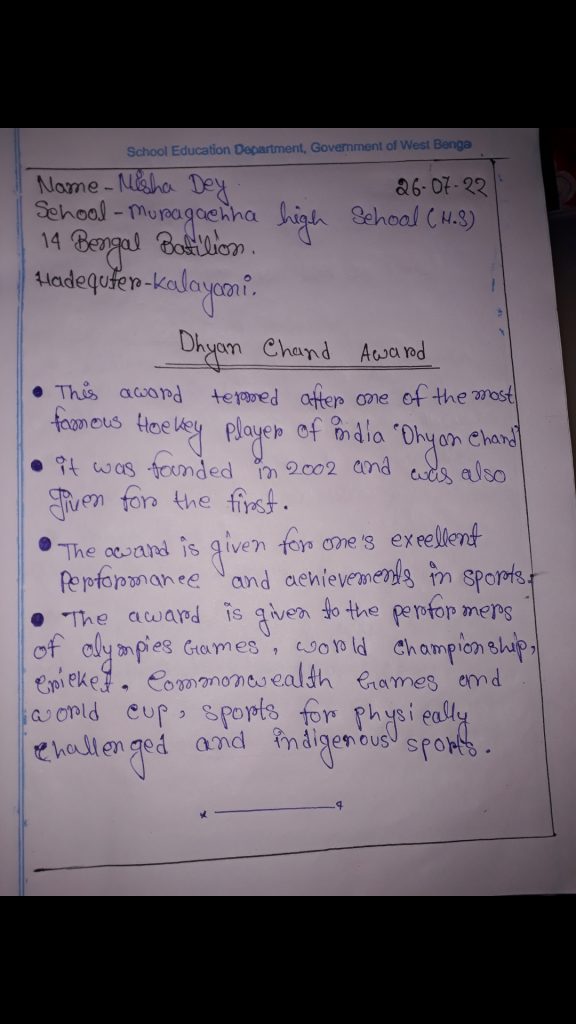 School Education Department, Government of West Benga
Name - Nisha Dey. 26-07-22
School - Muragachha high School (H.S)
14 Bengal Batilion.
Hadequter - Kalayani.
Dhyan Chand Award
• This award termed after one of the most
famous Hockey player of india "Dhyan Chand"
• it was founded in 2002 and was also
given for the first.
• The award is given for one's excellent
Performance and achievements in sports.
• The award is given to the performers
of olympics Games, world championship,
Cricket. Commonwealth Games and
world cup, sports for physically
challenged and indigenous sports.